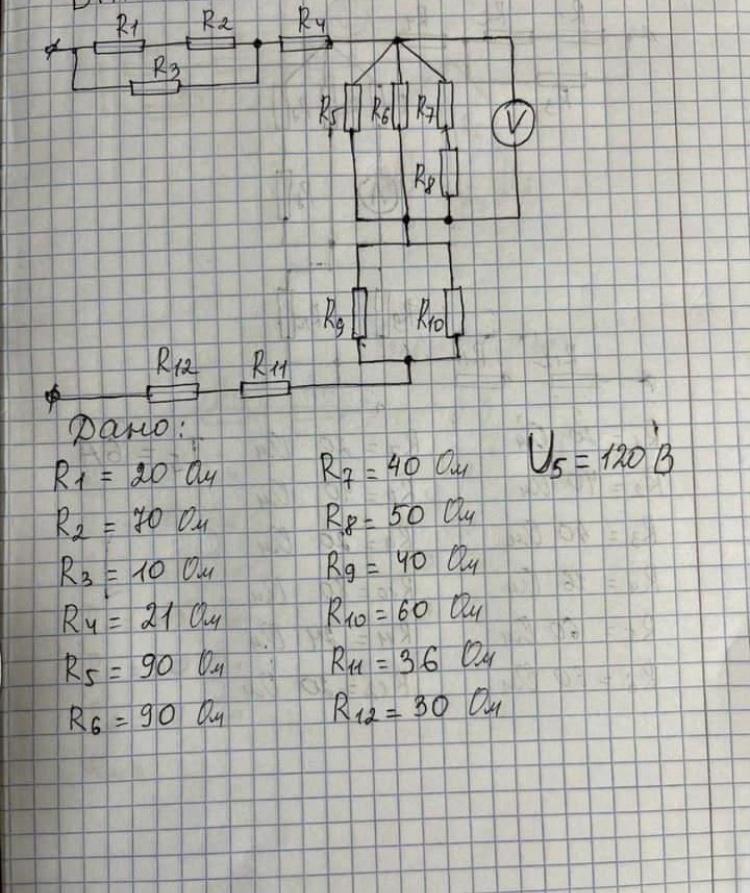 R1 R2 R4
R3
R5 R6 R7 V
R8
R9 R10
R12 R11
Дано:
R1 = 20 Ом
R2 = 70 Ом
R3 = 10 Ом
R4 = 21 Ом
R5 = 90 Ом
R6 = 90 Ом
R7 = 40 Ом
R8 = 50 Ом
R9 = 40 Ом
R10 = 60 Ом
R11 = 36 Ом
R12 = 30 Ом
U5 = 120 В